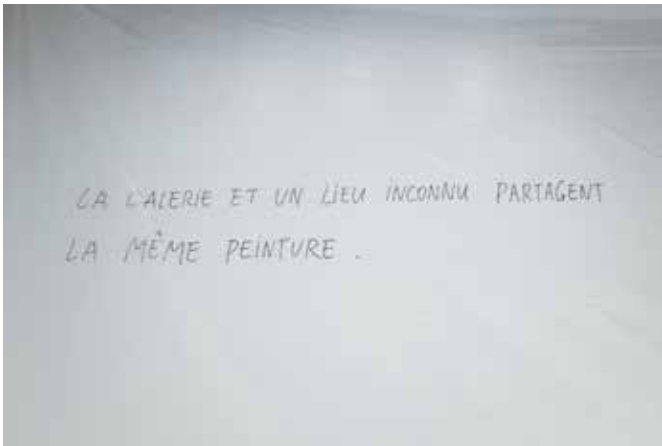 LA GALERIE ET UN LIEU INCONNU PARTAGENT
LA MÊME PEINTURE.